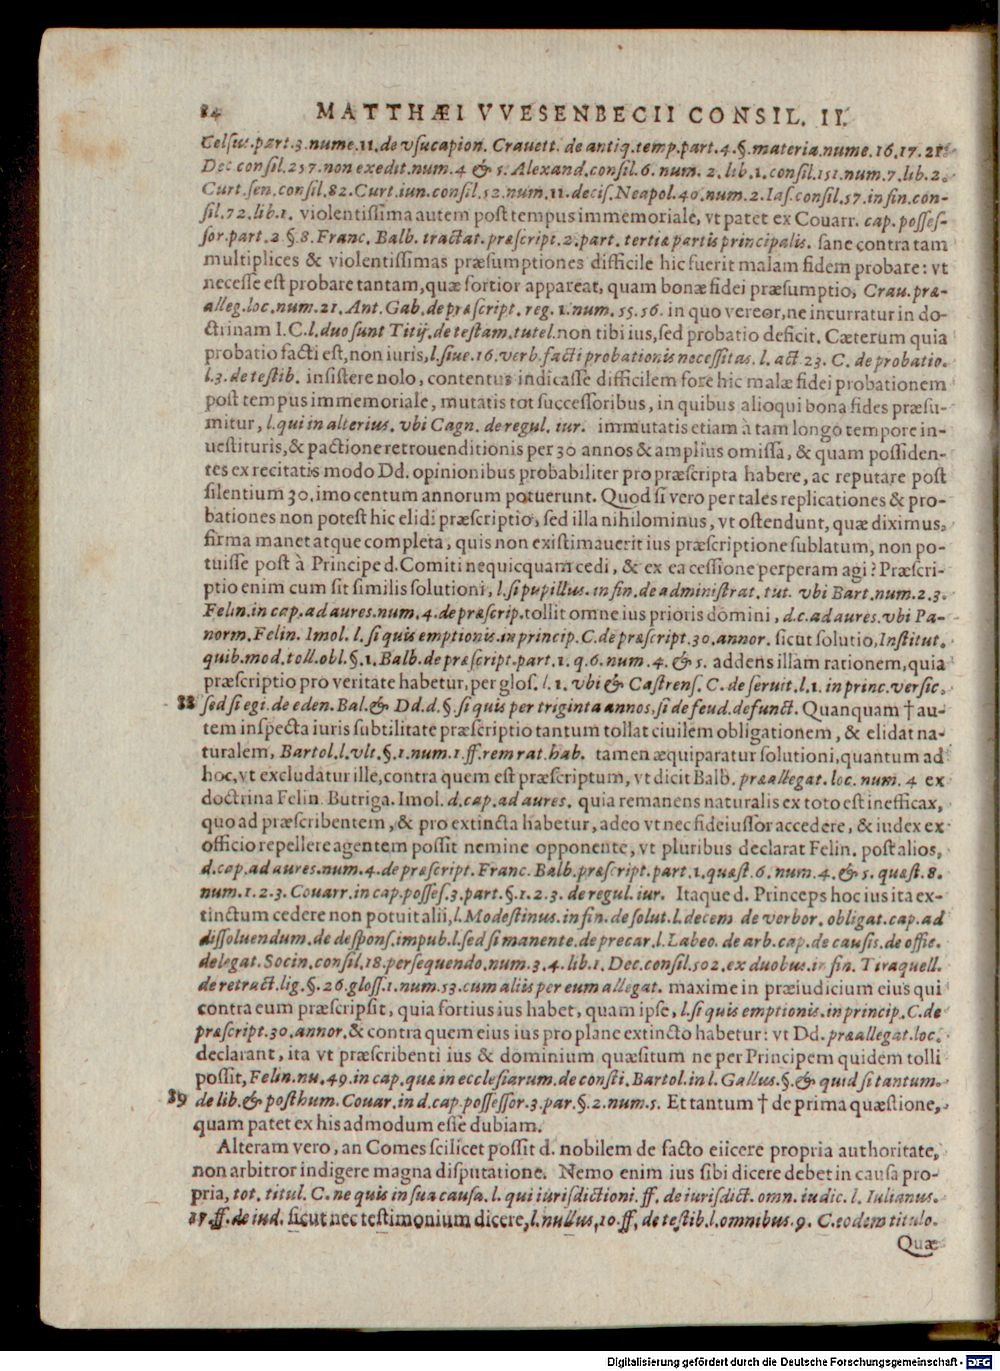 84 MATTHÆI VVESENBECII CONSIL. II.
Celsus.part.3.nume.11.de vsucapion. Crauett. de antiq.temp.part.4.§.materia.nume.16.17.21.
Dec consil.257.non exedit.num.4 & 5. Alexand.consil.6. num. 2. lib.1.consil.151.num.7.lib.2.
Curt.sen.consil.82.Curt.iun.consil.52.num.11.decis.Neapol.40.num.2.Ias.consil.57.in fin.con-
sil.72.lib.1. violentissima autem post tempus immemoriale, vt patet ex Couarr. cap.posses-
sor.part.2 §.8.Franc. Balb. tractat.præscript.2.part. tertiæ partis principalis. sane contra tam
multiplices & violentissimas præsumptiones difficile hic fuerit malam fidem probare: vt
necesse est probare tantam,quæ fortior appareat, quam bonæ fidei præsumptio, Crau.præ-
alleg.loc.num.21. Ant. Gab.de præscript. reg. 1.num. 55.56. in quo vereor,ne incurratur in do-
ctrinam I.C.l.duo sunt Titij.de testam.tutel.non tibi ius,sed probatio deficit. Cæterum quia
probatio facti est,non iuris,l.siue.16.verb.facti probationis necessitas. l. act 23. C. de probatio.
l.3.de testib. insistere nolo, contentus indicasse difficilem fore hic malæ fidei probationem
post tempus immemoriale, mutatis tot successoribus, in quibus alioqui bona fides præsu-
mitur, l.qui in alterius. vbi Cagn. de regul. iur. immutatis etiam à tam longo tempore in-
uestituris,& pactione retrouenditionis per 30 annos & amplius omissa, & quam possiden-
tes ex recitatis modo Dd. opinionibus probabiliter pro præscripta habere, ac reputare post
silentium 30.imo centum annorum potuerunt. Quod si vero per tales replicationes & pro-
bationes non potest hic elidi præscriptio, sed illa nihilominus, vt ostendunt, quæ diximus,
firma manet atque completa, quis non existimauerit ius præscriptione sublatum, non po-
tuisse post à Principe d.Comiti nequicquam cedi, & ex ea cessione perperam agi? Præscri-
ptio enim cum sit similis solutioni, l.si pupillus.in fin.de administrat. tut. vbi Bart.num.2.3.
Felin.in cap.ad aures.num.4.de præscrip.tollit omne ius prioris domini, d.c.ad aures.vbi Pa-
norm.Felin. Imol. l. si quis emptionis.in princip.C.de præscript.30.annor. sicut solutio,Institut.
quib.mod.toll.obl.§.1.Balb.de præscript.part.1.q.6.num.4. & 5. addens illam rationem,quia
præscriptio pro veritate habetur,per glos. l.1. vbi & Castrens. C. de seruit.l.1. in princ.versic.
88 sed si egi.de eden. Bal.& Dd.d.§.si quis per triginta annos.si de feud.defunct. Quanquam † au-
tem inspecta iuris subtilitate præscriptio tantum tollat ciuilem obligationem, & elidat na-
turalem, Bartol.l.vlt.§.1.num.1.ff.rem rat.hab. tamen æquiparatur solutioni,quantum ad
hoc,vt excludatur ille,contra quem est præscriptum, vt dicit Balb. præallegat.loc.num.4 ex
doctrina Felin. Butriga. Imol. d.cap.ad aures. quia remanens naturalis ex toto est inefficax,
quo ad præscribentem, & pro extincta habetur, adeo vt nec fideiussor accedere, & iudex ex
officio repellere agentem possit nemine opponente, vt pluribus declarat Felin. post alios,
d.cap.ad aures.num.4.de præscript. Franc. Balb.præscript.part.1.quæst.6.num.4.& 5.quæst.8.
num.1.2.3. Couarr.in cap.posses.3.part.§.1.2.3. de regul.iur. Itaque d. Princeps hoc ius ita ex-
tinctum cedere non potuit alii,l.Modestinus.in fin.de solut.l.decem de verbor. obligat.cap.ad
dissoluendum.de despons.impub.l.sed si manente.de precar.l.Labeo. de arb.cap.de causis.de offic.
delegat.Socin.consil.18.persequendo.num.3.4.lib.1. Dec.consil.502.ex duobus.in fin. Tiraquell.
de retract.lig.§.26.gloss.1.num.53.cum aliis per eum allegat. maxime in præiudicium eius qui
contra eum præscripsit, quia fortius ius habet, quam ipse, l.si quis emptionis.in princip.C.de
præscript.30.annor.& contra quem eius ius pro plane extincto habetur: vt Dd. præallegat.loc.
declarant, ita vt præscribenti ius & dominium quæsitum ne per Principem quidem tolli
possit, Felin.nu.49.in cap.quæ in ecclesiarum.de consti.Bartol.in l. Gallus.§.& quid si tantum.
89 de lib.& posthum. Couar.in d.cap.possessor.3.par.§.2.num.5. Et tantum † de prima quæstione,
quam patet ex his admodum esse dubiam.
Alteram vero, an Comes scilicet possit d. nobilem de facto eiicere propria authoritate,
non arbitror indigere magna disputatione. Nemo enim ius sibi dicere debet in causa pro-
pria, tot. titul. C. ne quis in sua causa. l. qui iurisdictioni. ff. de iurisdict. omn. iudic. l. Iulianus.
17.ff.de iud. sicut nec testimonium dicere,l.nullus,10.ff, de testib.l.omnibus.9. C.eodem titulo.
Quæ
Digitalisierung gefördert durch die Deutsche Forschungsgemeinschaft - DFG